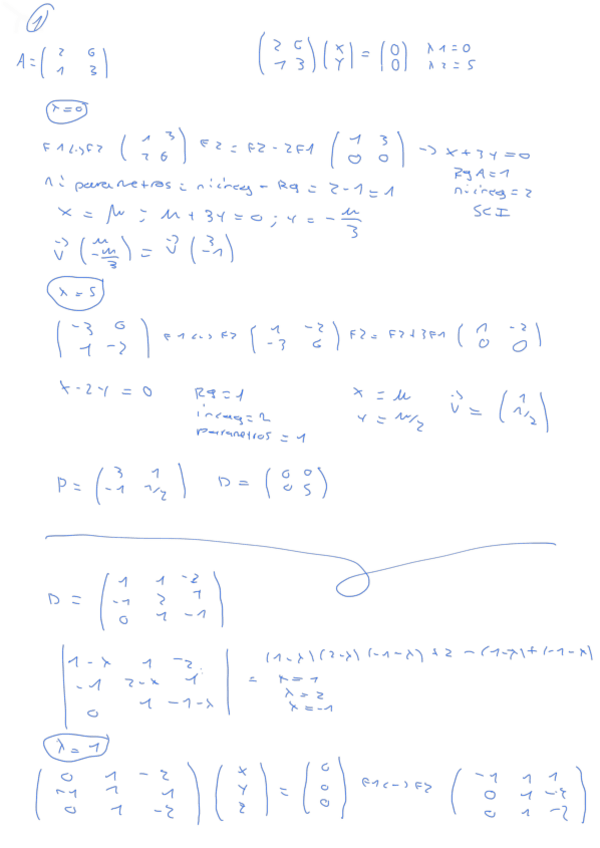 1
A = ( 2 6 ; 1 3 )   ( 2 6 ; 1 3 ) ( x ; y ) = ( 0 ; 0 )   λ1 = 0   λ2 = 5
λ = 0
F1<->F2 ( 1 3 ; 2 6 ) F2 = F2 - 2F1 ( 1 3 ; 0 0 ) -> x + 3y = 0
RgA = 1
nº incog = 2
SCI
nº parametros = nº incog - Rg = 2 - 1 = 1
x = μ ; μ + 3y = 0 ; y = - μ/3
v ( μ ; -μ/3 ) = v ( 3 ; -1 )
λ = 5
( -3 6 ; 1 -2 ) F1<->F2 ( 1 -2 ; -3 6 ) F2 = F2 + 3F1 ( 1 -2 ; 0 0 )
x - 2y = 0   Rg = 1   x = μ   v = ( 1 ; 1/2 )
incog = 2   y = μ/2
parametros = 1
P = ( 3 1 ; -1 1/2 )   D = ( 0 0 ; 0 5 )
D = ( 1 1 -2 ; -1 2 1 ; 0 1 -1 )
| 1-λ 1 -2 ; -1 2-λ 1 ; 0 1 -1-λ | = (1-λ)(2-λ)(-1-λ) + 2 - (1-λ) + (-1-λ)
λ = 1
λ = 2
λ = -1
λ = 1
( 0 1 -2 ; -1 1 1 ; 0 1 -2 ) ( x ; y ; z ) = ( 0 ; 0 ; 0 ) F1<->F2 ( -1 1 1 ; 0 1 -2 ; 0 1 -2 )